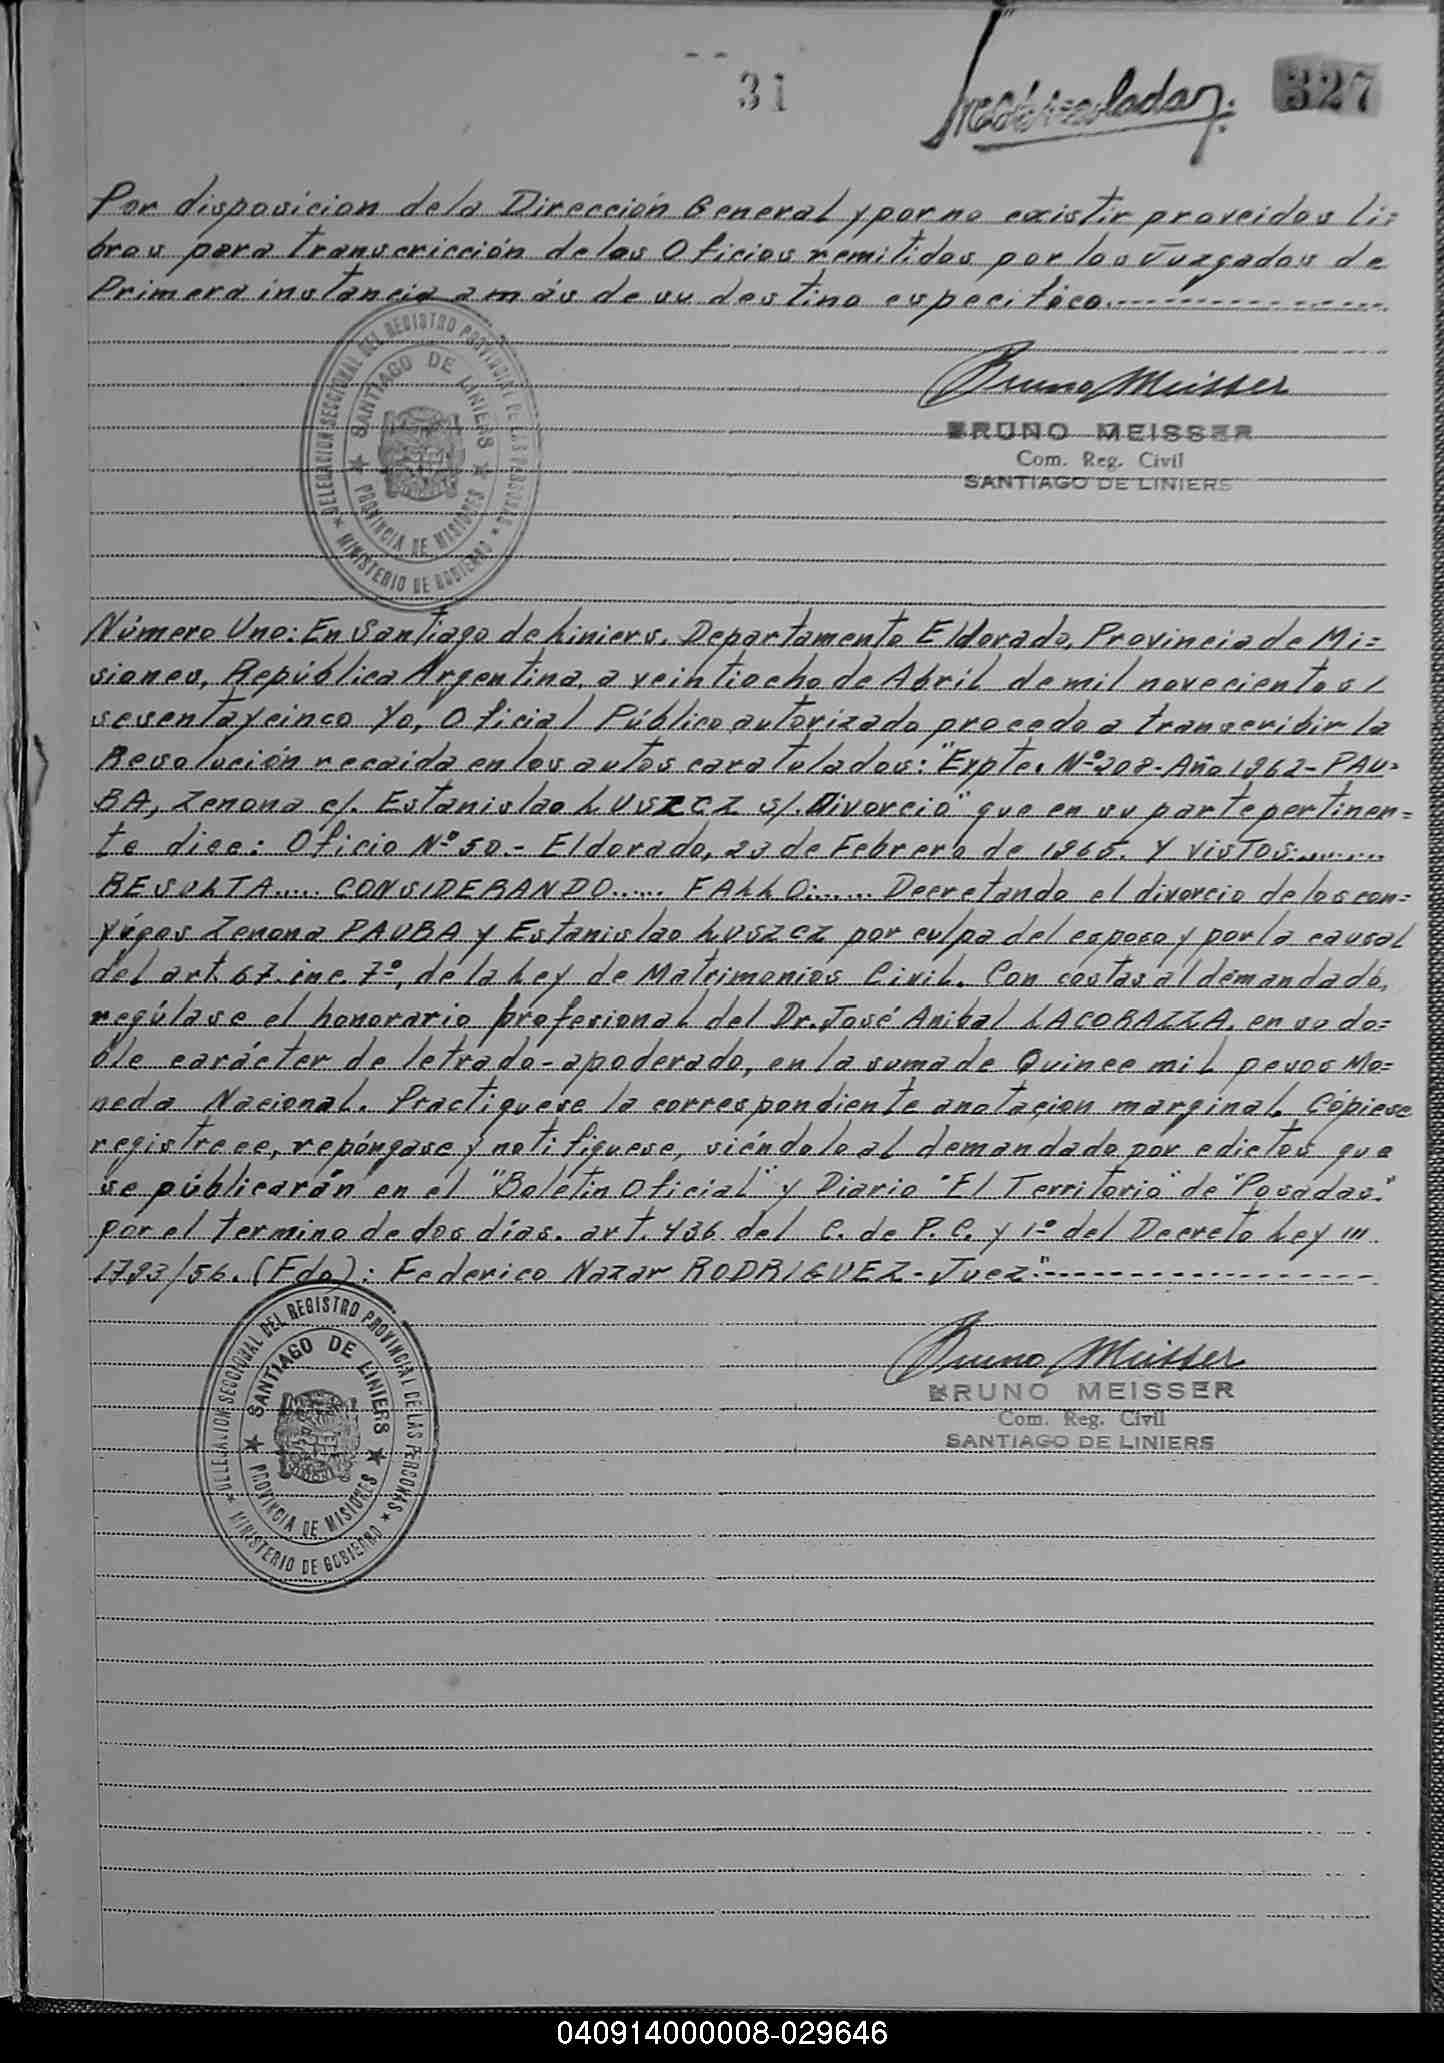 31
327
Por disposicion de la Dirección General y por no existir proveidos li=
bros para transcricción de los Oficios remitidos por los Juzgados de
Primera instancia a más de su destino especifico.
DELEGACION SECCIONAL DEL REGISTRO PROVINCIAL DE LAS PERSONAS
SANTIAGO DE LINIERS
PROVINCIA DE MISIONES
MINISTERIO DE GOBIERNO
Bruno Meisser
BRUNO MEISSER
Com. Reg. Civil
SANTIAGO DE LINIERS
Número Uno: En Santiago de Liniers, Departamento Eldorado, Provincia de Mi=
siones, República Argentina, a veintiocho de Abril de mil novecientos /
sesenta y cinco Yo, Oficial Público autorizado procedo a transcribir la
Resolución recaida en los autos caratulados: "Expte. Nº 208-Año 1962-PAU=
BA, Zenona c/. Estanislao LUSZCZ s/. Divorcio" que en su parte pertinen=
te dice: Oficio Nº 50.- Eldorado, 23 de Febrero de 1965. Y VISTOS:........
RESULTA..... CONSIDERANDO...... FALLO:...... Decretando el divorcio de los con=
yúgos Zenona PAUBA y Estanislao LUSZCZ por culpa del esposo y por la causal
del art. 67. inc. 7º, de la Ley de Matrimonios Civil. Con costas al demandado,
regúlase el honorario profesional del Dr. José Anibal LACORAZZA, en su do=
ble carácter de letrado-apoderado, en la suma de Quince mil pesos Mo=
neda Nacional. Practiquese la correspondiente anotacion marginal. Cópiese
registrese, repóngase y notifiquese, siéndolo al demandado por edictos que
se públicarán en el "Boletin Oficial" y Diario "El Territorio" de "Posadas."
por el termino de dos días. art. 436 del C. de P. C. y 1º del Decreto Ley ///
1793/56. (Fdo): Federico Nazar RODRIGUEZ-Juez"
DELEGACION SECCIONAL DEL REGISTRO PROVINCIAL DE LAS PERSONAS
SANTIAGO DE LINIERS
PROVINCIA DE MISIONES
MINISTERIO DE GOBIERNO
Bruno Meisser
BRUNO MEISSER
Com. Reg. Civil
SANTIAGO DE LINIERS
040914000008-029646